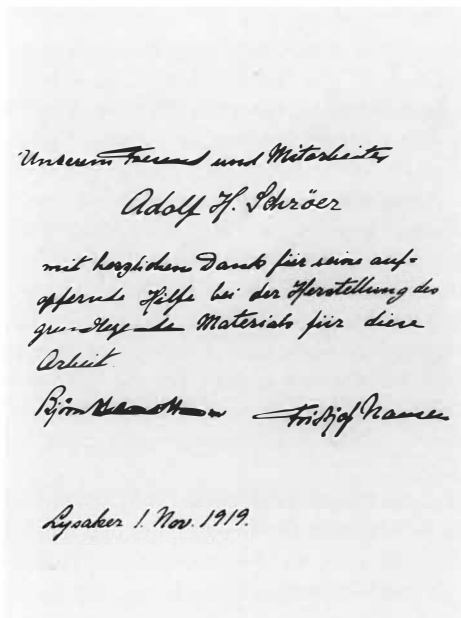 Unserem Freund und Mitarbeiter
Adolf H. Schröer
mit herzlichem Dank für seine auf=
opfernde Hilfe bei der Herstellung des
grundlegende Materials für diese
Arbeit.
Björn Helland-Hansen Fridtjof Nansen
Lysaker 1. Nov. 1919.